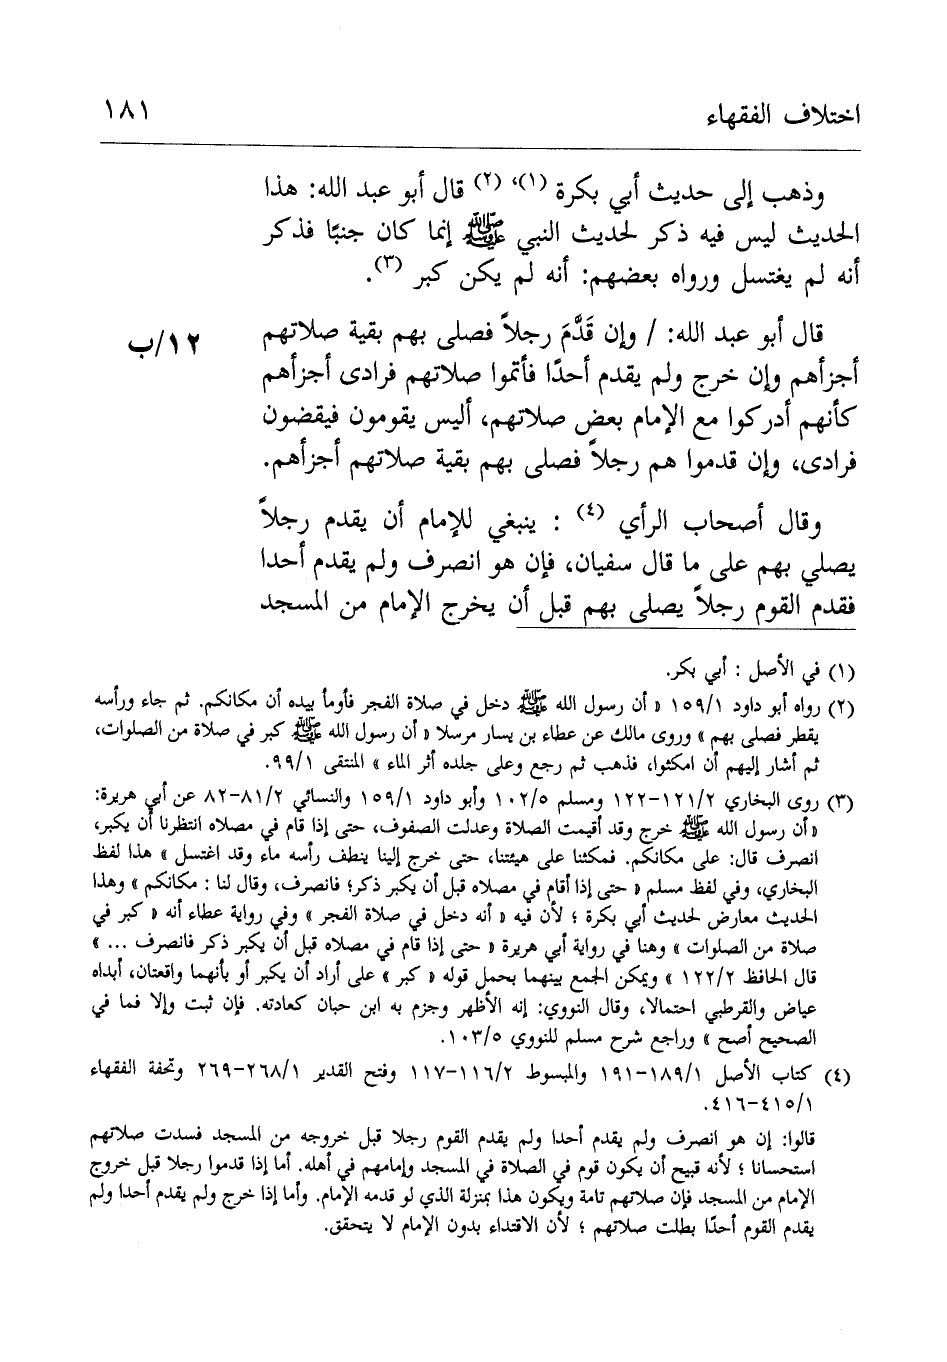 اختلاف الفقهاء
١٨١
وذهب إلى حديث أبي بكرة (١)، (٢) قال أبو عبد الله: هذا
الحديث ليس فيه ذكر لحديث النبي ﷺ إنما كان جنبًا فذكر
أنه لم يغتسل ورواه بعضهم: أنه لم يكن كبر (٣).
قال أبو عبد الله: / وإن قَدَّمَ رجلاً فصلى بهم بقية صلاتهم
١٢/ب
أجزأهم وإن خرج ولم يقدم أحدًا فأتموا صلاتهم فرادى أجزأهم
كأنهم أدركوا مع الإمام بعض صلاتهم، أليس يقومون فيقضون
فرادى، وإن قدموا هم رجلاً فصلى بهم بقية صلاتهم أجزأهم.
وقال أصحاب الرأي (٤) : ينبغي للإمام أن يقدم رجلاً
يصلي بهم على ما قال سفيان، فإن هو انصرف ولم يقدم أحدا
فقدم القوم رجلاً يصلى بهم قبل أن يخرج الإمام من المسجد
(١) في الأصل : أبي بكر.
(٢) رواه أبو داود ١٥٩/١ « أن رسول الله ﷺ دخل في صلاة الفجر فأومأ بيده أن مكانكم. ثم جاء ورأسه
يقطر فصلى بهم » وروى مالك عن عطاء بن يسار مرسلا « أن رسول الله ﷺ كبر في صلاة من الصلوات،
ثم أشار إليهم أن امكثوا، فذهب ثم رجع وعلى جلده أثر الماء » المنتقى ٩٩/١.
(٣) روى البخاري ١٢١/٢-١٢٢ ومسلم ١٠٢/٥ وأبو داود ١٥٩/١ والنسائي ٨١/٢-٨٢ عن أبي هريرة:
« أن رسول الله ﷺ خرج وقد أقيمت الصلاة وعدلت الصفوف، حتى إذا قام في مصلاه انتظرنا أن يكبر،
انصرف قال: على مكانكم. فمكثنا على هيئتنا، حتى خرج إلينا ينطف رأسه ماء وقد اغتسل » هذا لفظ
البخاري، وفي لفظ مسلم « حتى إذا أقام في مصلاه قبل أن يكبر ذكر؛ فانصرف، وقال لنا : مكانكم » وهذا
الحديث معارض لحديث أبي بكرة ؛ لأن فيه « أنه دخل في صلاة الفجر » وفي رواية عطاء أنه « كبر في
صلاة من الصلوات » وهنا في رواية أبي هريرة « حتى إذا قام في مصلاه قبل أن يكبر ذكر فانصرف ... »
قال الحافظ ١٢٢/٢ » ويمكن الجمع بينهما بحمل قوله « كبر » على أراد أن يكبر أو بأنهما واقعتان، أبداه
عياض والقرطبي احتمالا، وقال النووي: إنه الأظهر وجزم به ابن حبان كعادته. فإن ثبت وإلا فما في
الصحيح أصح » وراجع شرح مسلم للنووي ١٠٣/٥.
(٤) كتاب الأصل ١٨٩/١-١٩١ والمبسوط ١١٦/٢-١١٧ وفتح القدير ٢٦٨/١-٢٦٩ وتحفة الفقهاء
٤١٥/١-٤١٦.
قالوا: إن هو انصرف ولم يقدم أحدا ولم يقدم القوم رجلا قبل خروجه من المسجد فسدت صلاتهم
استحسانا ؛ لأنه قبيح أن يكون قوم في الصلاة في المسجد وإمامهم في أهله. أما إذا قدموا رجلا قبل خروج
الإمام من المسجد فإن صلاتهم تامة ويكون هذا بمنزلة الذي لو قدمه الإمام. وأما إذا خرج ولم يقدم أحدا ولم
يقدم القوم أحدًا بطلت صلاتهم ؛ لأن الاقتداء بدون الإمام لا يتحقق.